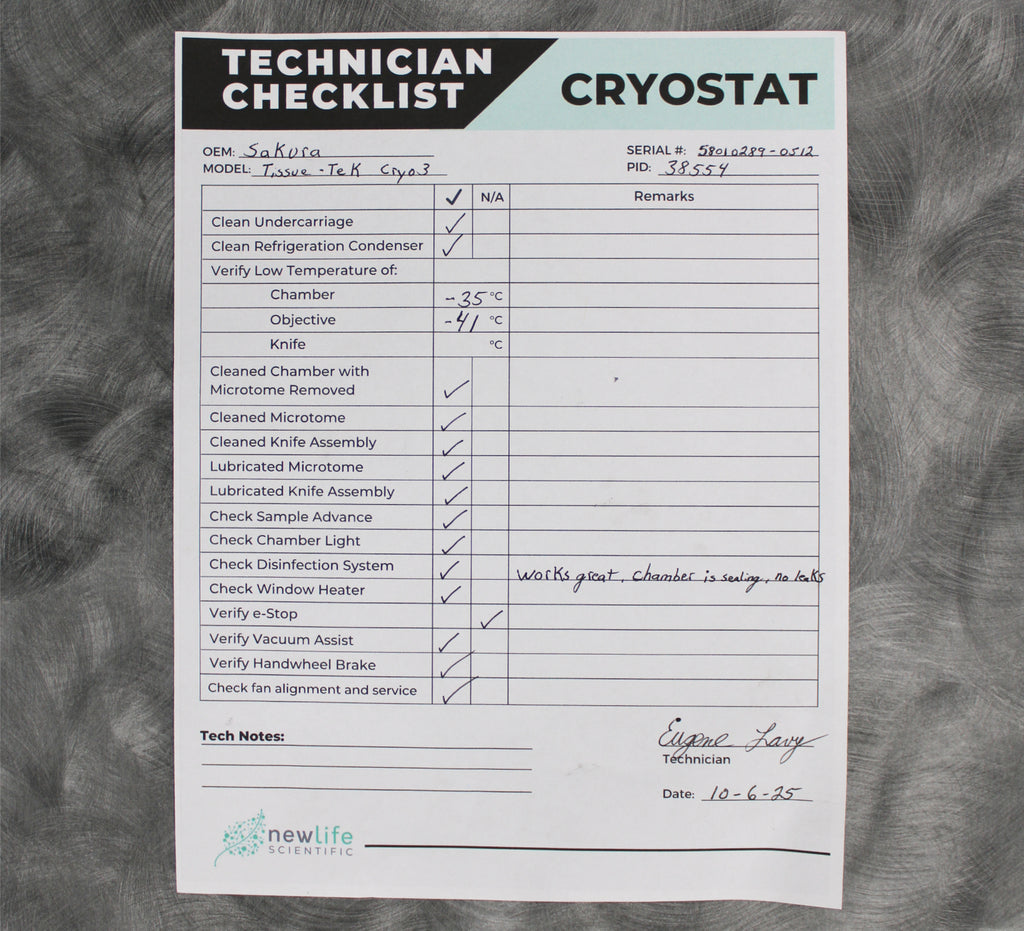 TECHNICIAN
CHECKLIST
CRYOSTAT
OEM: Sakura
SERIAL #: 58010289-0512
MODEL: Tissue-Tek Cryo3
PID: 38554
✓ N/A Remarks
Clean Undercarriage ✓
Clean Refrigeration Condenser ✓
Verify Low Temperature of:
Chamber -35 °C
Objective -41 °C
Knife °C
Cleaned Chamber with
Microtome Removed ✓
Cleaned Microtome ✓
Cleaned Knife Assembly ✓
Lubricated Microtome ✓
Lubricated Knife Assembly ✓
Check Sample Advance ✓
Check Chamber Light ✓
Check Disinfection System ✓ works great, chamber is sealing, no leaks
Check Window Heater ✓
Verify e-Stop ✓
Verify Vacuum Assist ✓
Verify Handwheel Brake ✓
Check fan alignment and service ✓
Tech Notes:
Eugene Lavy
Technician
Date: 10-6-25
newlife
SCIENTIFIC